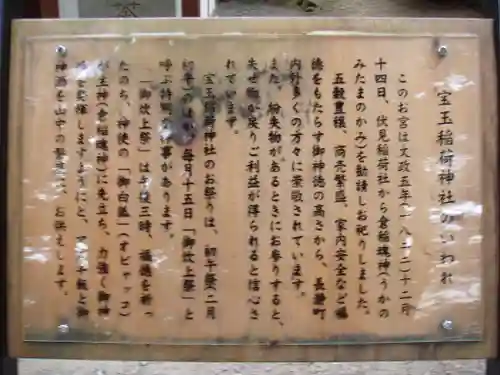 宝玉稲荷神社のいわれ
このお宮は文政五年(一八二二)十二月
十四日、伏見稲荷社から倉稲魂神(うかの
みたまのかみ)を勧請しお祀りしました。
五穀豊穣、商売繁盛、家内安全など福
徳をもたらす御神徳の高さから、長瀞町
内外多くの方々に崇敬されています。
また、紛失物があるときにお参りすると、
失せ物が戻りご利益が得られると信心さ
れています。
宝玉稲荷神社のお祭りは、初午祭(二月
初午)のほか、毎月十五日「御炊上祭」と
呼ぶ特殊な神事があります。
「御炊上祭」は午後三時、福徳を祈っ
たのち、神使の「御白狐」(オビャッコ)
が主神(倉稲魂神)に先立ち、力強く御神
を発揮しますようにと、
神酒を山中の お供えします。